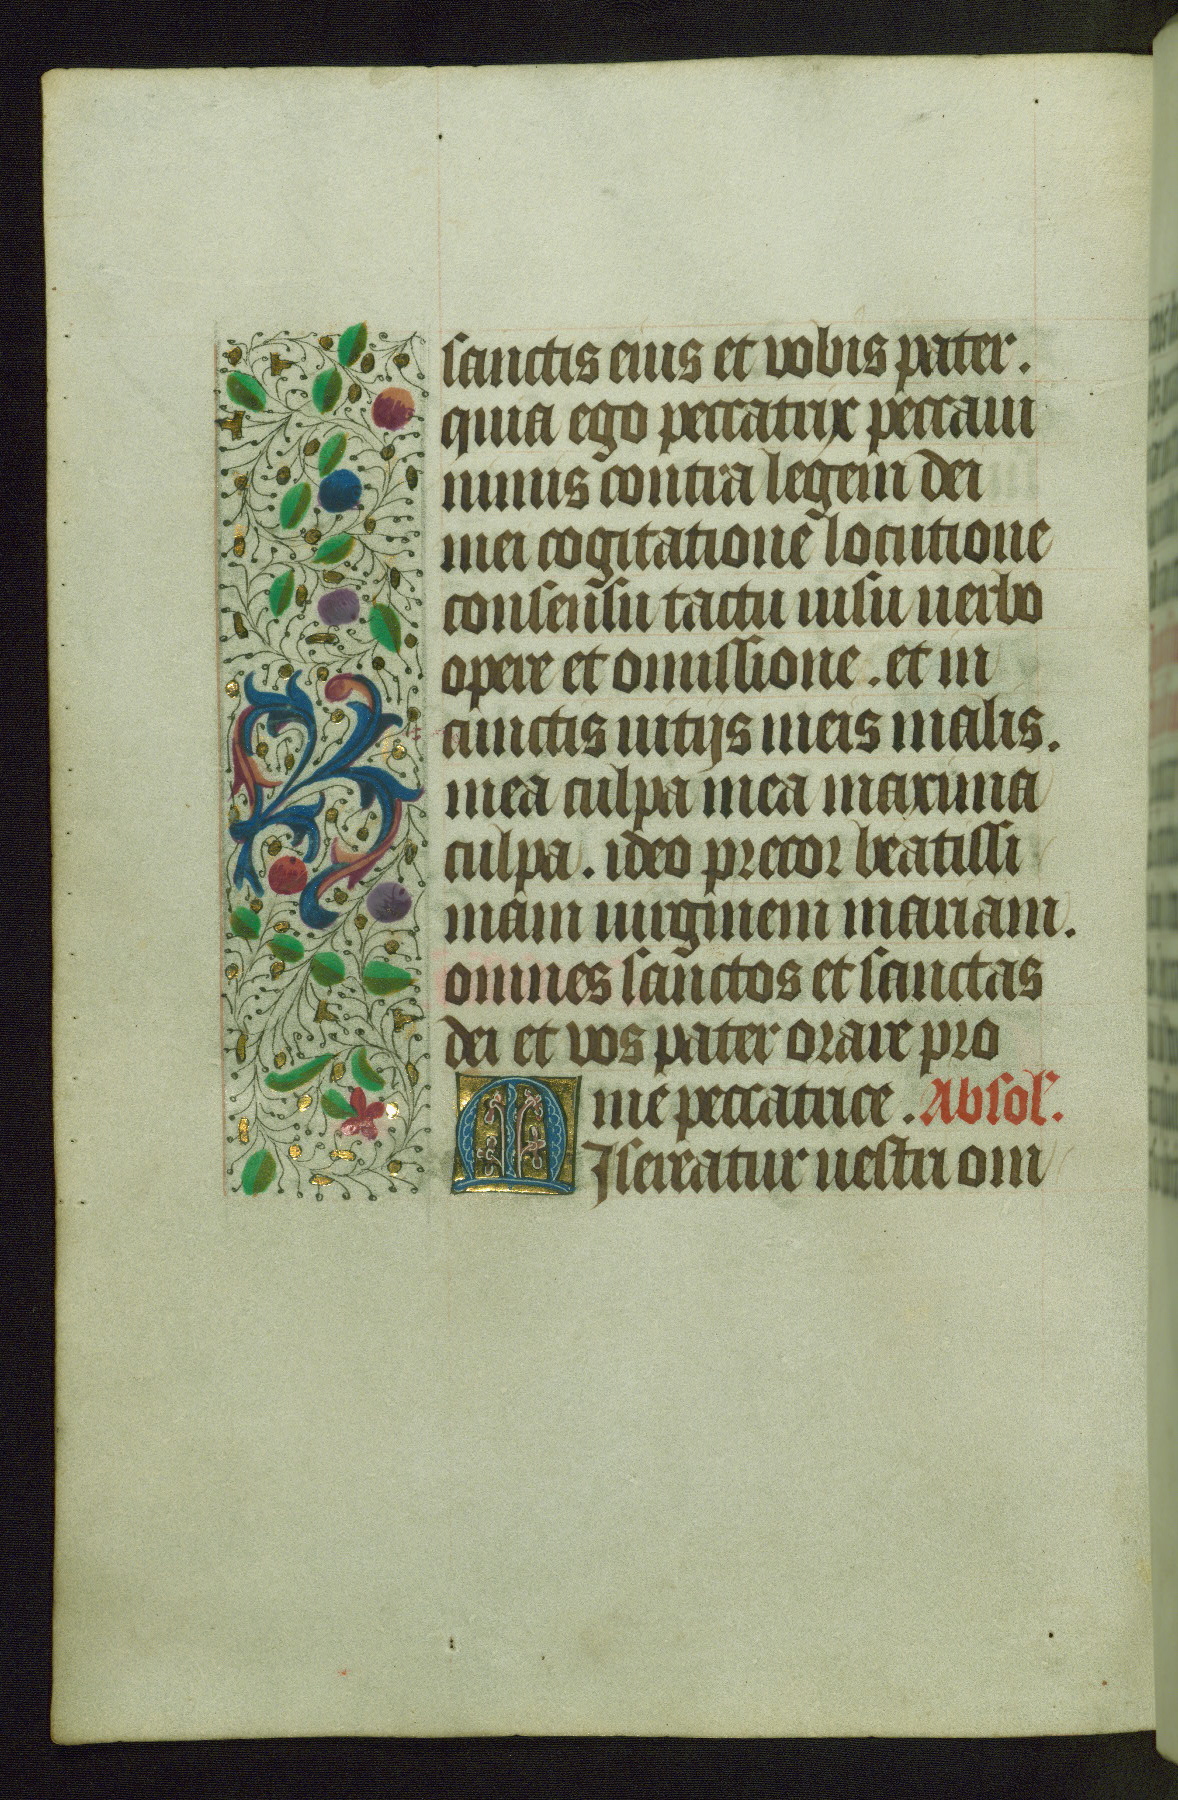 sanctis eius et vobis pater.
quia ego peccatrix peccaui
nimis contra legem dei
mei cogitatione locutione
consensu tactu uisu uerbo
opere et omissione . et in
cunctis uitijs meis malis.
mea culpa mea maxima
culpa . ideo precor beatissi
mam uirginem mariam.
omnes sanctos et sanctas
dei et vos pater orare pro
me peccatrice . Absol.
MIsereatur uestri om